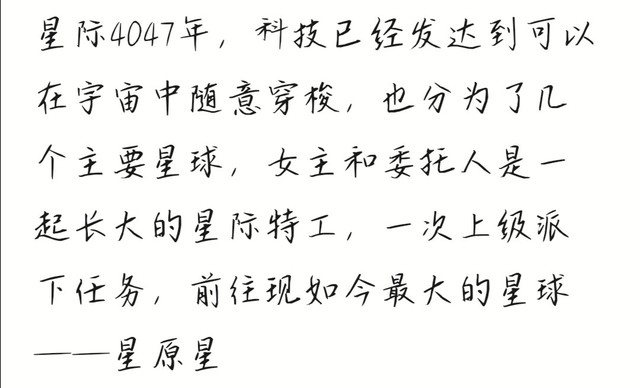 星际4047年，科技已经发达到可以
在宇宙中随意穿梭，也分为了几
个主要星球，女主和委托人是一
起长大的星际特工，一次上级派
下任务，前往现如今最大的星球
——星原星